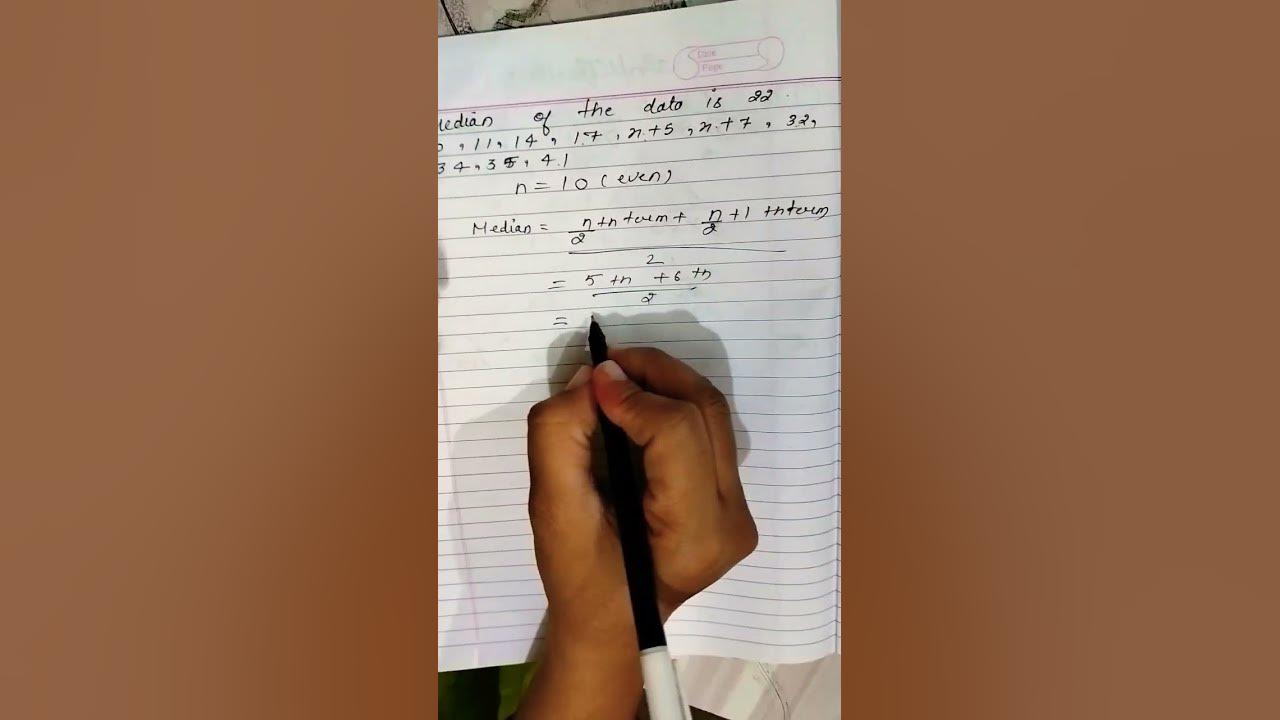 Date
Page
Median of the data is 22.
, 11, 14, 17, x+5, x+7, 32,
34, 35, 41
n = 10 (even)
Median = n/2 th term + n/2 + 1 th term
2
= 5 th + 6 th
2
=